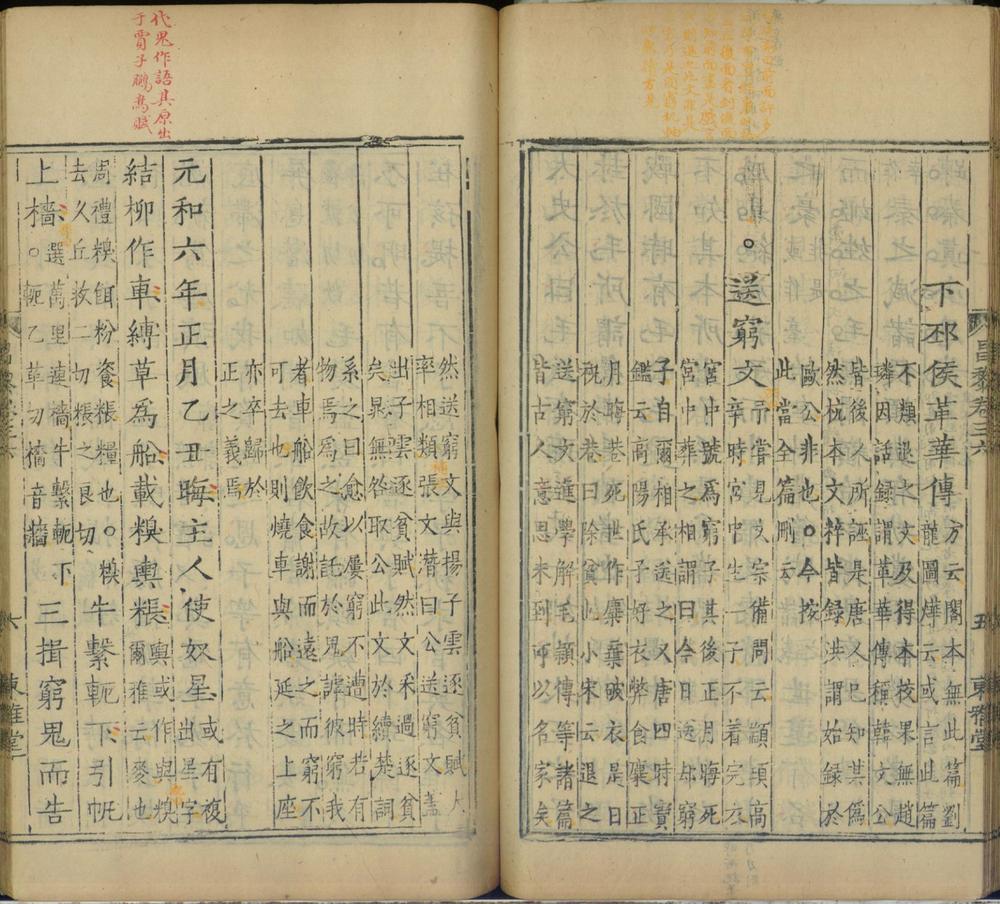 下邳侯革華傳
方云閣本無此篇劉
龍圖燁云或言此篇
不類退之文及得本校果無趙
璘因話録謂革華傳稱韓文公
皆後人所誣是唐人已知其偽
然杭本文粹皆録洪謂始録於
歐公非也○今按
此當全篇刪云
送窮文
予嘗見文宗備問云顓頊高
辛時宮中生一子不着完衣
宮中號為窮子其後正月晦死
宮中葬之相謂曰今日送却窮
子自爾相承送之又唐四時寶
鑑云高陽氏子好衣弊食糜正
月晦巷死世作糜棄破衣是日
祝於巷曰除貧此小宋云退之
送窮文進學解毛穎傳等諸篇
皆古人意思未到可以名家矣
昌黎卷三六
五
東雅堂
代鬼作語其原出
于賈子鵩鳥賦
然送窮文與揚子雲逐貧賦大
率相類張文潛曰公送窮文蓋
出子雲逐貧賦然文采過逐貧
矣晁無咎取公此文於續楚詞
系之曰愈以屢窮不遭時若有
物焉為之故託於鬼謔彼窮我
者車船飲食謝而遠之而窮不
可去也則燒車與船延之上座
亦卒歸於
正之義焉
元和六年正月乙丑晦主人使奴星
或有複
出星字
結柳作車縛草為船載糗輿粻
輿或作與糗
爾雅云麥也
周禮糗餌粉餈粻糧也○糗
去久丘救二切粻之良切
牛繫軛下引帆
上檣○
選萬里連檣牛繫軛下
軛乙革切檣音牆
三揖窮鬼而告
六
東雅堂